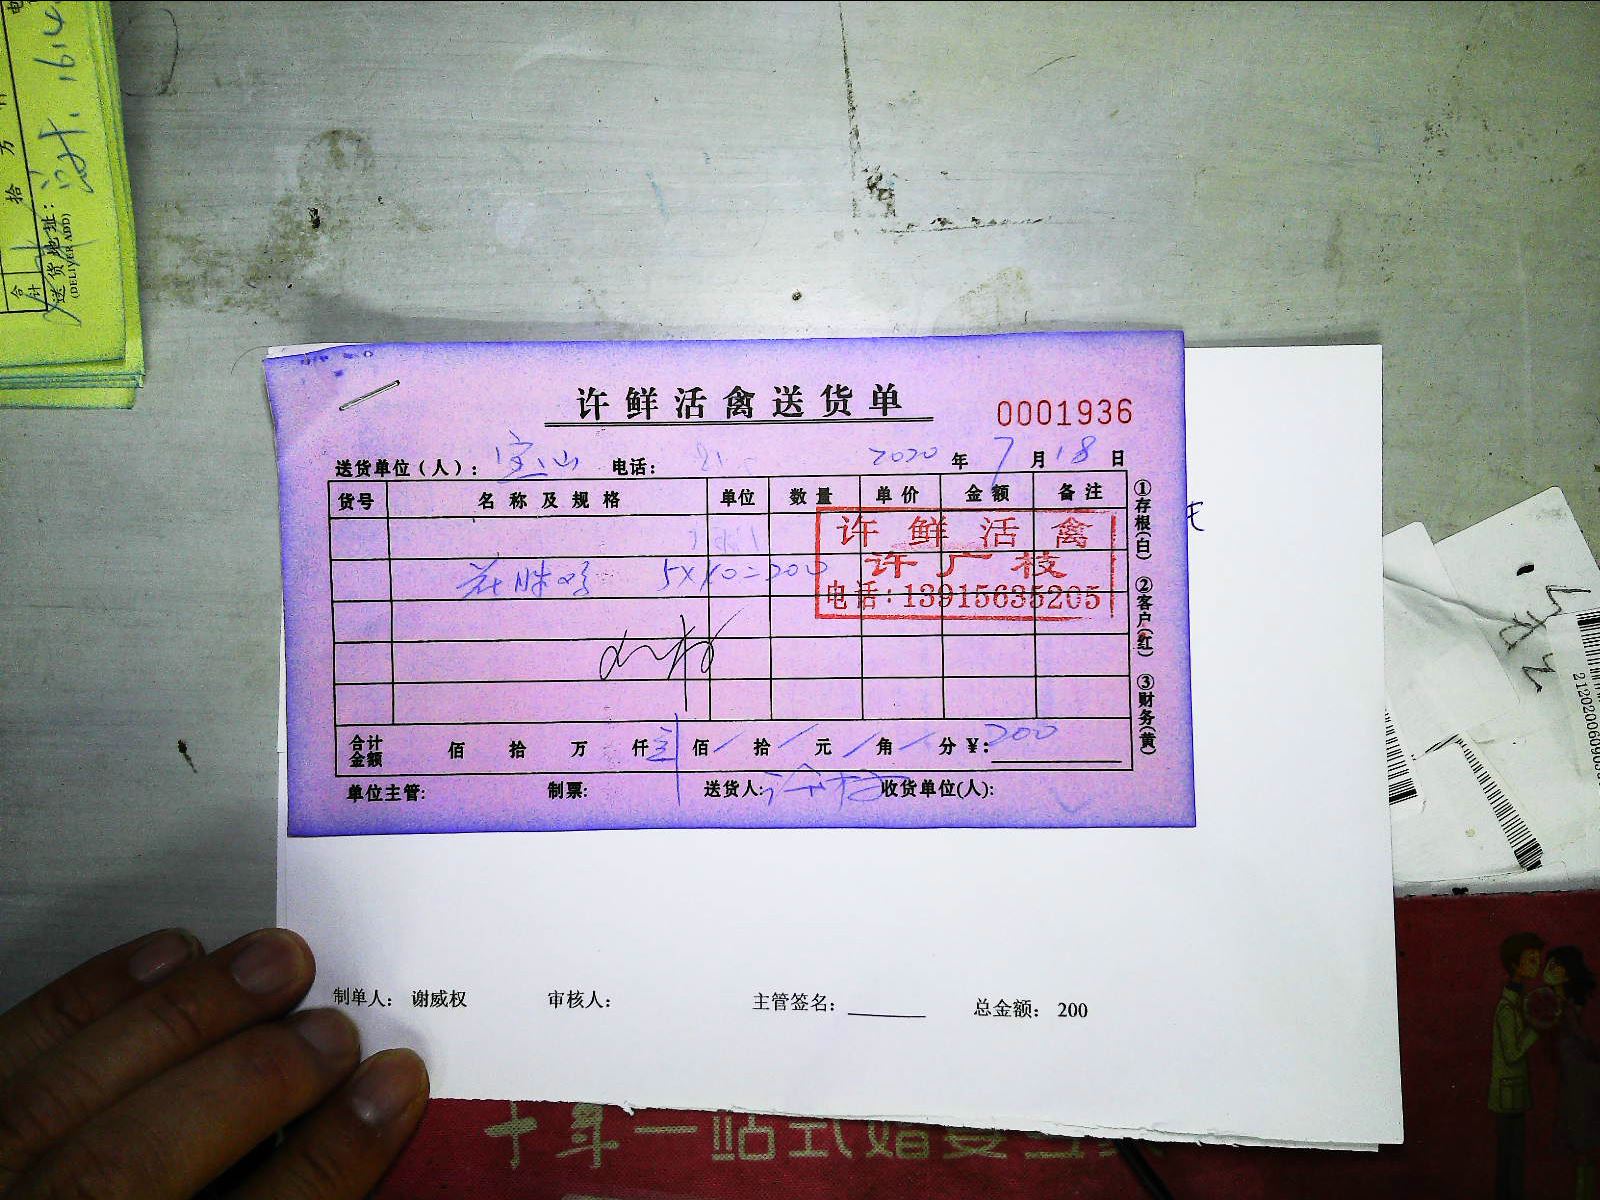 许鲜活禽送货单
0001936
送货单位（人）： 宝山 电话： 2020 年 7 月 18 日
货号 名称及规格 单位 数量 单价 金额 备注
许鲜活禽
许广枝
电话：13915635205
5×40=200
①存根(白) ②客户(红) ③财务(黄)
合计金额 佰 拾 万 仟 佰 拾 元 角 分 ¥： 200
单位主管： 制票： 送货人： 收货单位(人)：
制单人： 谢威权 审核人： 主管签名： 总金额： 200
合计
送货地址：
(DELIVER ADD)
拾 万
16.4
十年一站式婚宴